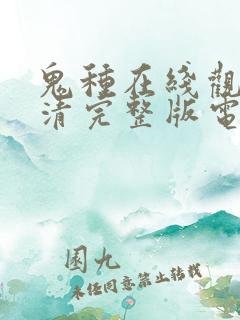 鬼種在綫觀
清完整版電
園九
未经同意禁止转载